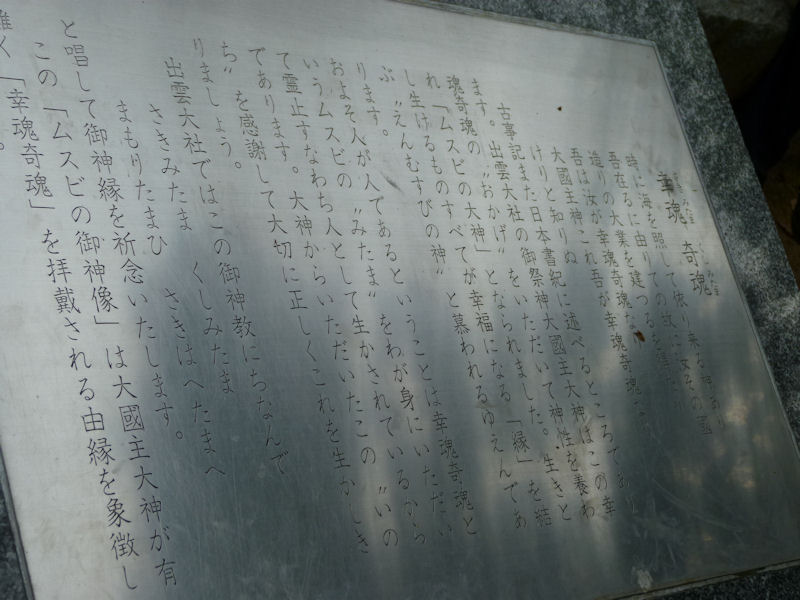 幸魂 奇魂
時に海を照して依り来る神あり
吾在るに由りての故に汝その國
造りの大業を建つるを得たり
吾は汝が幸魂奇魂なり
大國主神これ吾が幸魂奇魂
けりと知りぬ
古事記また日本書紀に述べるところであり
ます。出雲大社の御祭神大國主大神はこの幸
魂奇魂の〝おかげ〟をいただいて神性を養わ
れ「ムスビの大神」となられました。生きと
し生けるものすべてが幸福になる「縁」を結
ぶ〝えんむすびの神〟と慕われるゆえんであ
ります。
およそ人が人であるということは幸魂奇魂と
いうムスビの〝みたま〟をわが身にいただい
て霊止すなわち人として生かされているから
であります。大神からいただいたこの〝いの
ち〟を感謝して大切に正しくこれを生かしき
りましょう。
出雲大社ではこの御神教にちなんで
さきみたま くしみたま
まもりたまひ さきはへたまへ
と唱して御神縁を祈念いたします。
この「ムスビの御神像」は大國主大神が有
難く「幸魂奇魂」を拝戴される由縁を象徴し